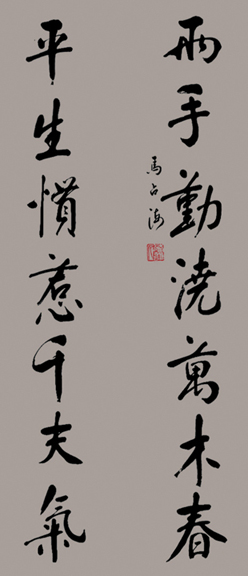 兩手勤澆萬木春
馬占海
平生慣惹千夫氣